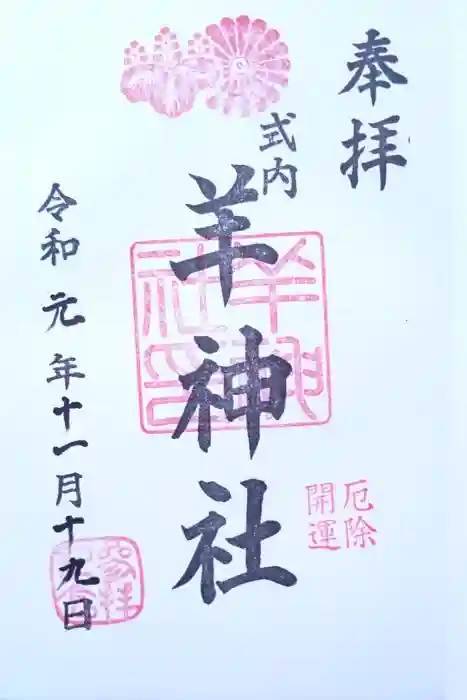 奉拝
式内
羊神社
厄除
開運
令和元年十一月十九日
参拝